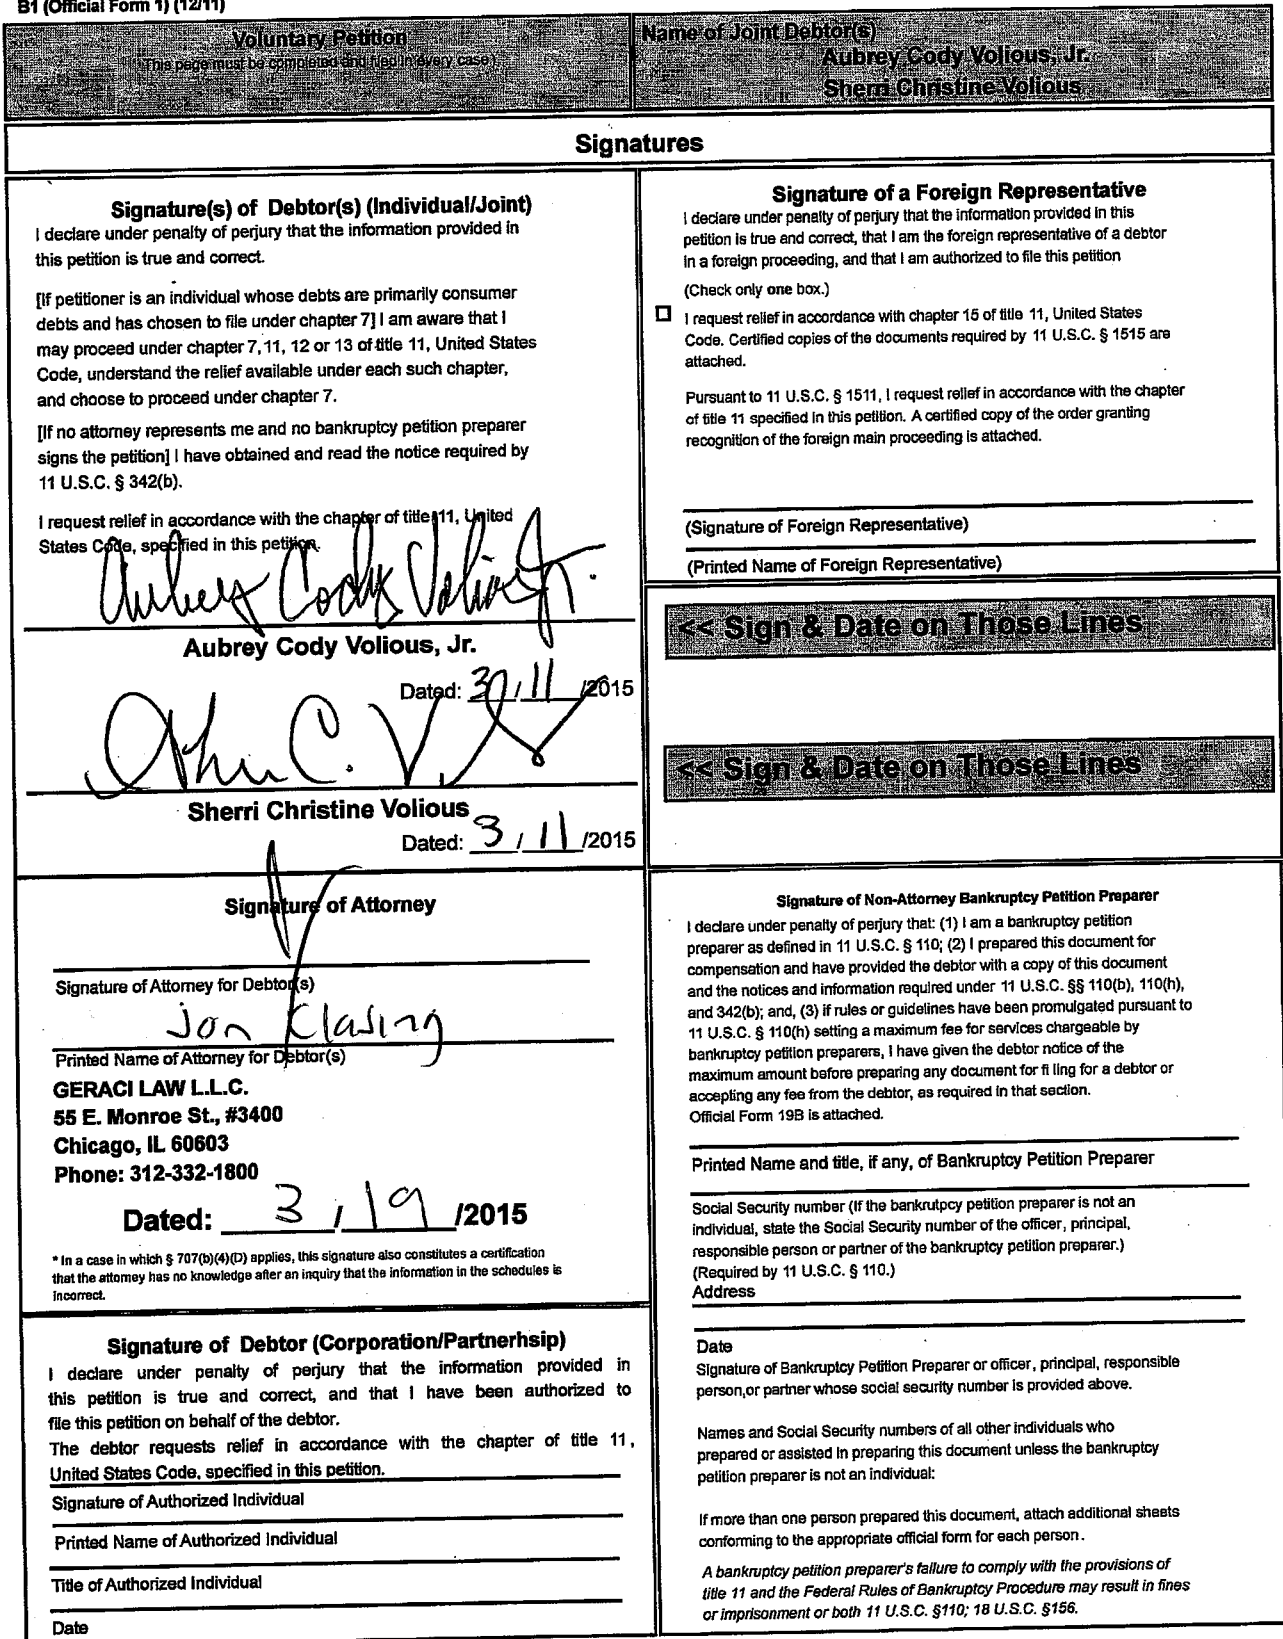 B1 (Official Form 1) (12/11)
Voluntary Petition
(This page must be completed and filed in every case)
Name of Joint Debtor(s)
Aubrey Cody Volious, Jr.
Sherri Christine Volious
Signatures
Signature(s) of Debtor(s) (Individual/Joint)
I declare under penalty of perjury that the information provided in
this petition is true and correct.
[If petitioner is an individual whose debts are primarily consumer
debts and has chosen to file under chapter 7] I am aware that I
may proceed under chapter 7, 11, 12 or 13 of title 11, United States
Code, understand the relief available under each such chapter,
and choose to proceed under chapter 7.
[If no attorney represents me and no bankruptcy petition preparer
signs the petition] I have obtained and read the notice required by
11 U.S.C. § 342(b).
I request relief in accordance with the chapter of title 11, United
States Code, specified in this petition.
Aubrey Cody Volious Jr.
Aubrey Cody Volious, Jr.
Dated: 3/11/2015
Sherri Christine Volious
Dated: 3/11/2015
Signature of Attorney
Signature of Attorney for Debtor(s)
Jon Clasing
Printed Name of Attorney for Debtor(s)
GERACI LAW L.L.C.
55 E. Monroe St., #3400
Chicago, IL 60603
Phone: 312-332-1800
Dated: 3/19/2015
* In a case in which § 707(b)(4)(D) applies, this signature also constitutes a certification
that the attorney has no knowledge after an inquiry that the information in the schedules is
incorrect.
Signature of Debtor (Corporation/Partnerhsip)
I declare under penalty of perjury that the information provided in
this petition is true and correct, and that I have been authorized to
file this petition on behalf of the debtor.
The debtor requests relief in accordance with the chapter of title 11,
United States Code, specified in this petition.
Signature of Authorized Individual
Printed Name of Authorized Individual
Title of Authorized Individual
Date
Signature of a Foreign Representative
I declare under penalty of perjury that the information provided in this
petition is true and correct, that I am the foreign representative of a debtor
in a foreign proceeding, and that I am authorized to file this petition
(Check only one box.)
I request relief in accordance with chapter 15 of title 11, United States
Code. Certified copies of the documents required by 11 U.S.C. § 1515 are
attached.
Pursuant to 11 U.S.C. § 1511, I request relief in accordance with the chapter
of title 11 specified in this petition. A certified copy of the order granting
recognition of the foreign main proceeding is attached.
(Signature of Foreign Representative)
(Printed Name of Foreign Representative)
<< Sign & Date on Those Lines
<< Sign & Date on Those Lines
Signature of Non-Attorney Bankruptcy Petition Preparer
I declare under penalty of perjury that: (1) I am a bankruptcy petition
preparer as defined in 11 U.S.C. § 110; (2) I prepared this document for
compensation and have provided the debtor with a copy of this document
and the notices and information required under 11 U.S.C. §§ 110(b), 110(h),
and 342(b); and, (3) if rules or guidelines have been promulgated pursuant to
11 U.S.C. § 110(h) setting a maximum fee for services chargeable by
bankruptcy petition preparers, I have given the debtor notice of the
maximum amount before preparing any document for fi ling for a debtor or
accepting any fee from the debtor, as required in that section.
Official Form 19B is attached.
Printed Name and title, if any, of Bankruptcy Petition Preparer
Social Security number (If the bankrutpcy petition preparer is not an
individual, state the Social Security number of the officer, principal,
responsible person or partner of the bankruptcy petition preparer.)
(Required by 11 U.S.C. § 110.)
Address
Date
Signature of Bankruptcy Petition Preparer or officer, principal, responsible
person,or partner whose social security number is provided above.
Names and Social Security numbers of all other individuals who
prepared or assisted in preparing this document unless the bankruptcy
petition preparer is not an individual:
If more than one person prepared this document, attach additional sheets
conforming to the appropriate official form for each person.
A bankruptcy petition preparer's failure to comply with the provisions of
title 11 and the Federal Rules of Bankruptcy Procedure may result in fines
or imprisonment or both 11 U.S.C. §110; 18 U.S.C. §156.